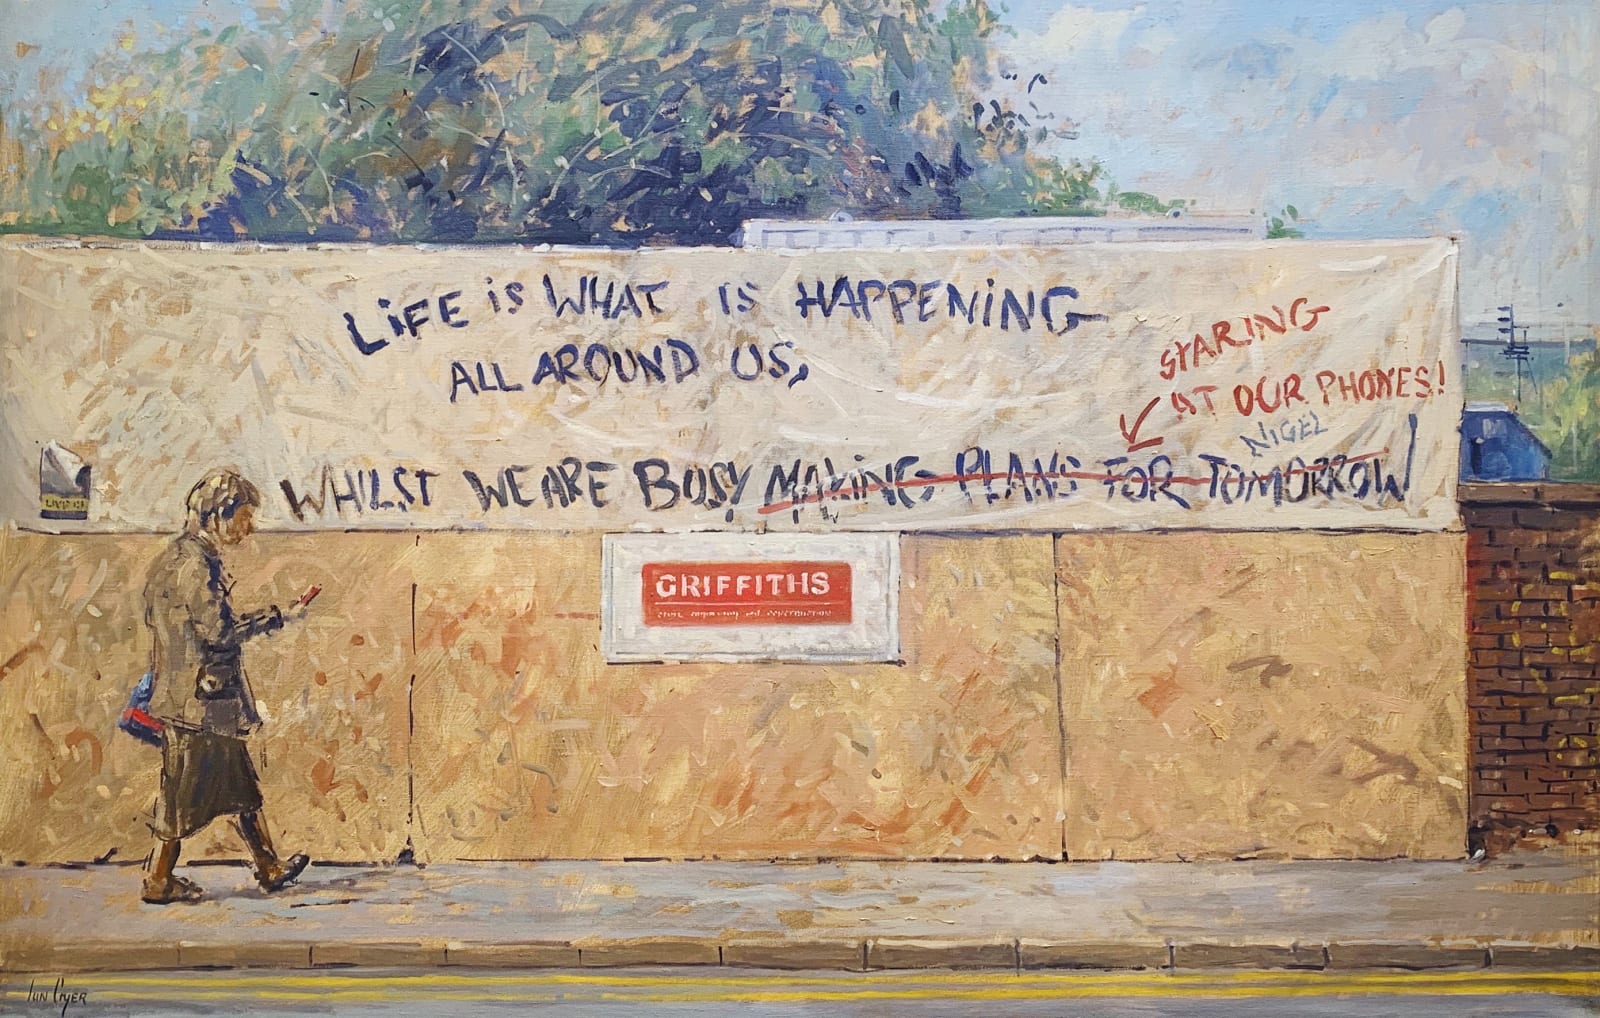 LiFE iS WHAT IS HAPPENiNG
ALL AROUND US,
STARING
AT OUR PHONES!
NIGEL
WHILST WE ARE BUSY MAKING PLANS FOR TOMORROW
GRIFFITHS
Ian Cryer